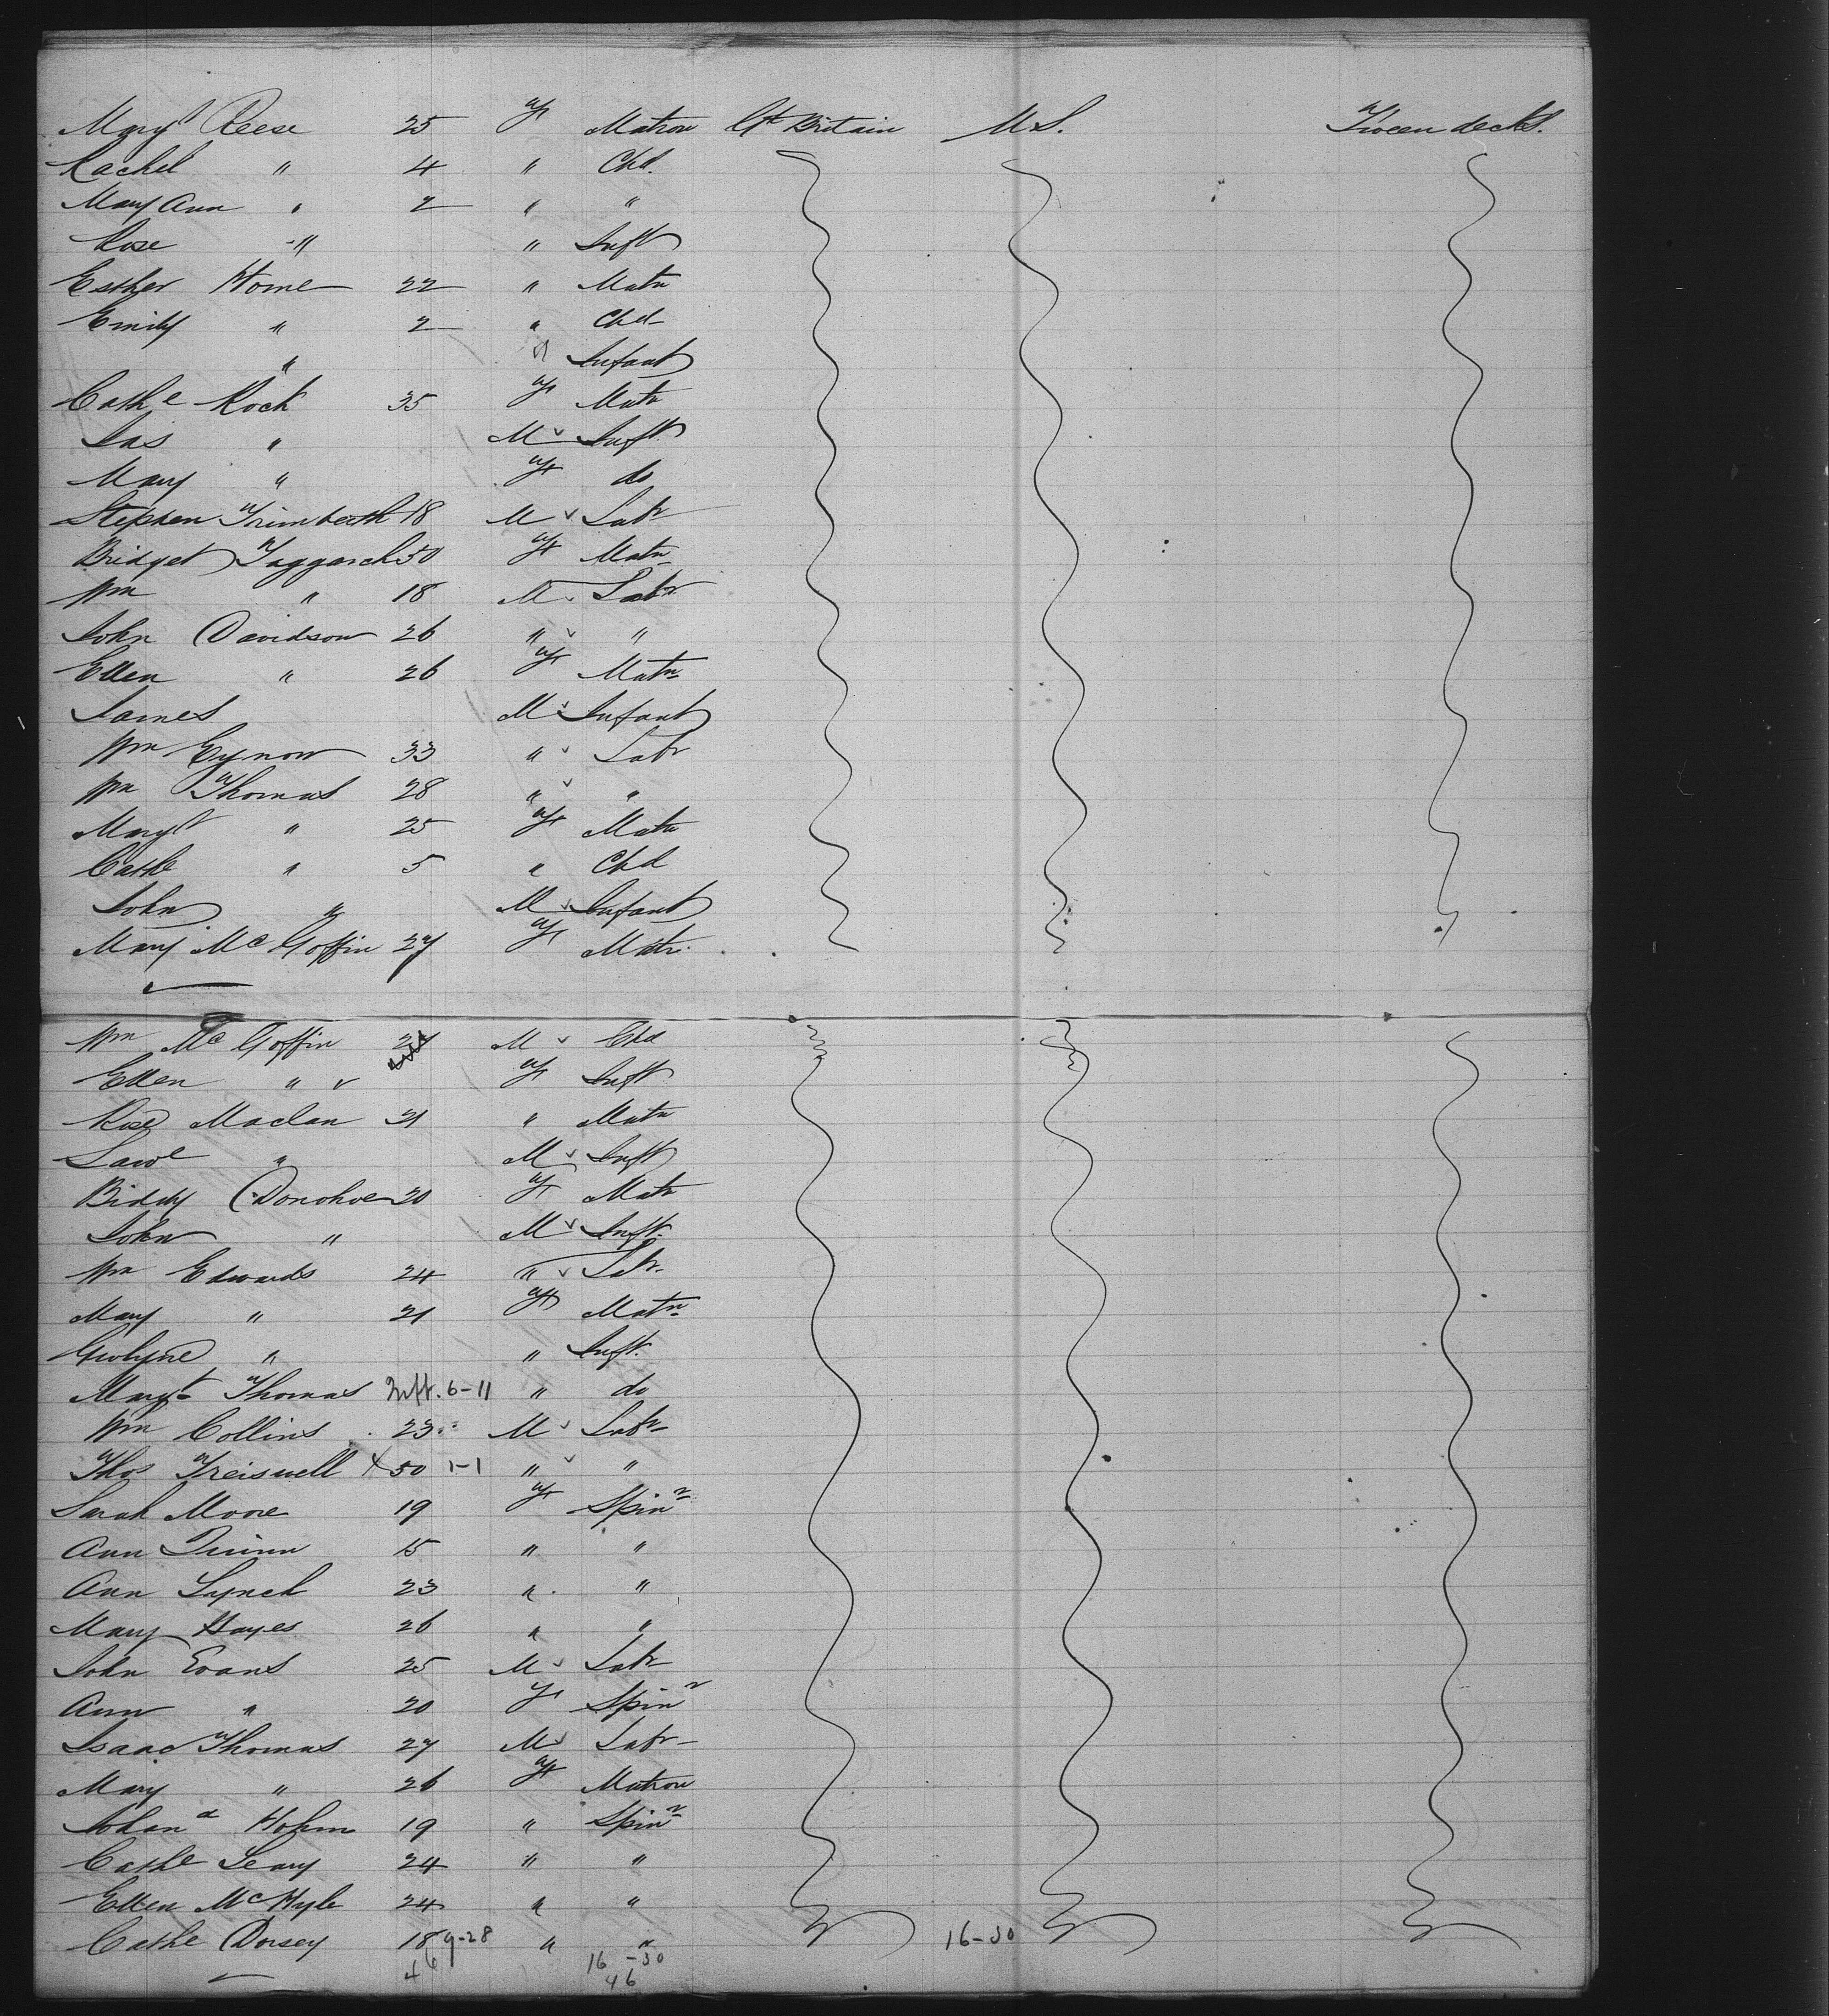 Margt Reese 25 F Matron Gt Britain U.S. Tween decks.
Rachel " 4 " Chd.
Mary Ann " 2 " "
Rose " " Inft
Esther Horne 22 " Matn
Emily " 2 " Chd
" " Infant
Cathe Rock 35 F Matn
Jas " M Inft
Mary " F do
Stephen 18 M Labr
Bridget 50 F Matn
Wm " 18 M Labr
John Davidson 26 " "
Ellen " 26 F Matn
James M Infant
Wm Eynon 33 " Labr
Wm Thomas 28 " "
Margt " 25 F Matn
Cathe " 5 " Chd
John " M Infant
Mary McGoffin 27 F Matn
Wm McGoffin M Chd
Ellen " F Inft
Rose Maclan 21 " Matn
Lawe " M Inft
Biddy Donohoe 20 F Matn
John " M Inft.
Wm Edwards 24 " Labr
Mary " 21 F Matn
" " Inft.
Margt Thomas Inft. 6-11 " do
Wm Collins 23 M Labr
Thos Treiswell X 50 1-1 " "
Sarah Moore 19 F Spinr
Ann Quinn 15 " "
Ann Lynch 23 " "
Mary Hayes 26 " "
John Evans 25 M Labr
Ann " 20 F Spinr
Isaac Thomas 27 M Labr
Mary " 26 F Matron
Johana Hohm 19 " Spinr
Cathe Leary 24 " "
Ellen McHyle 24 " "
Cathe Dorsey 18 9-28 " " 16-30
16-30
46